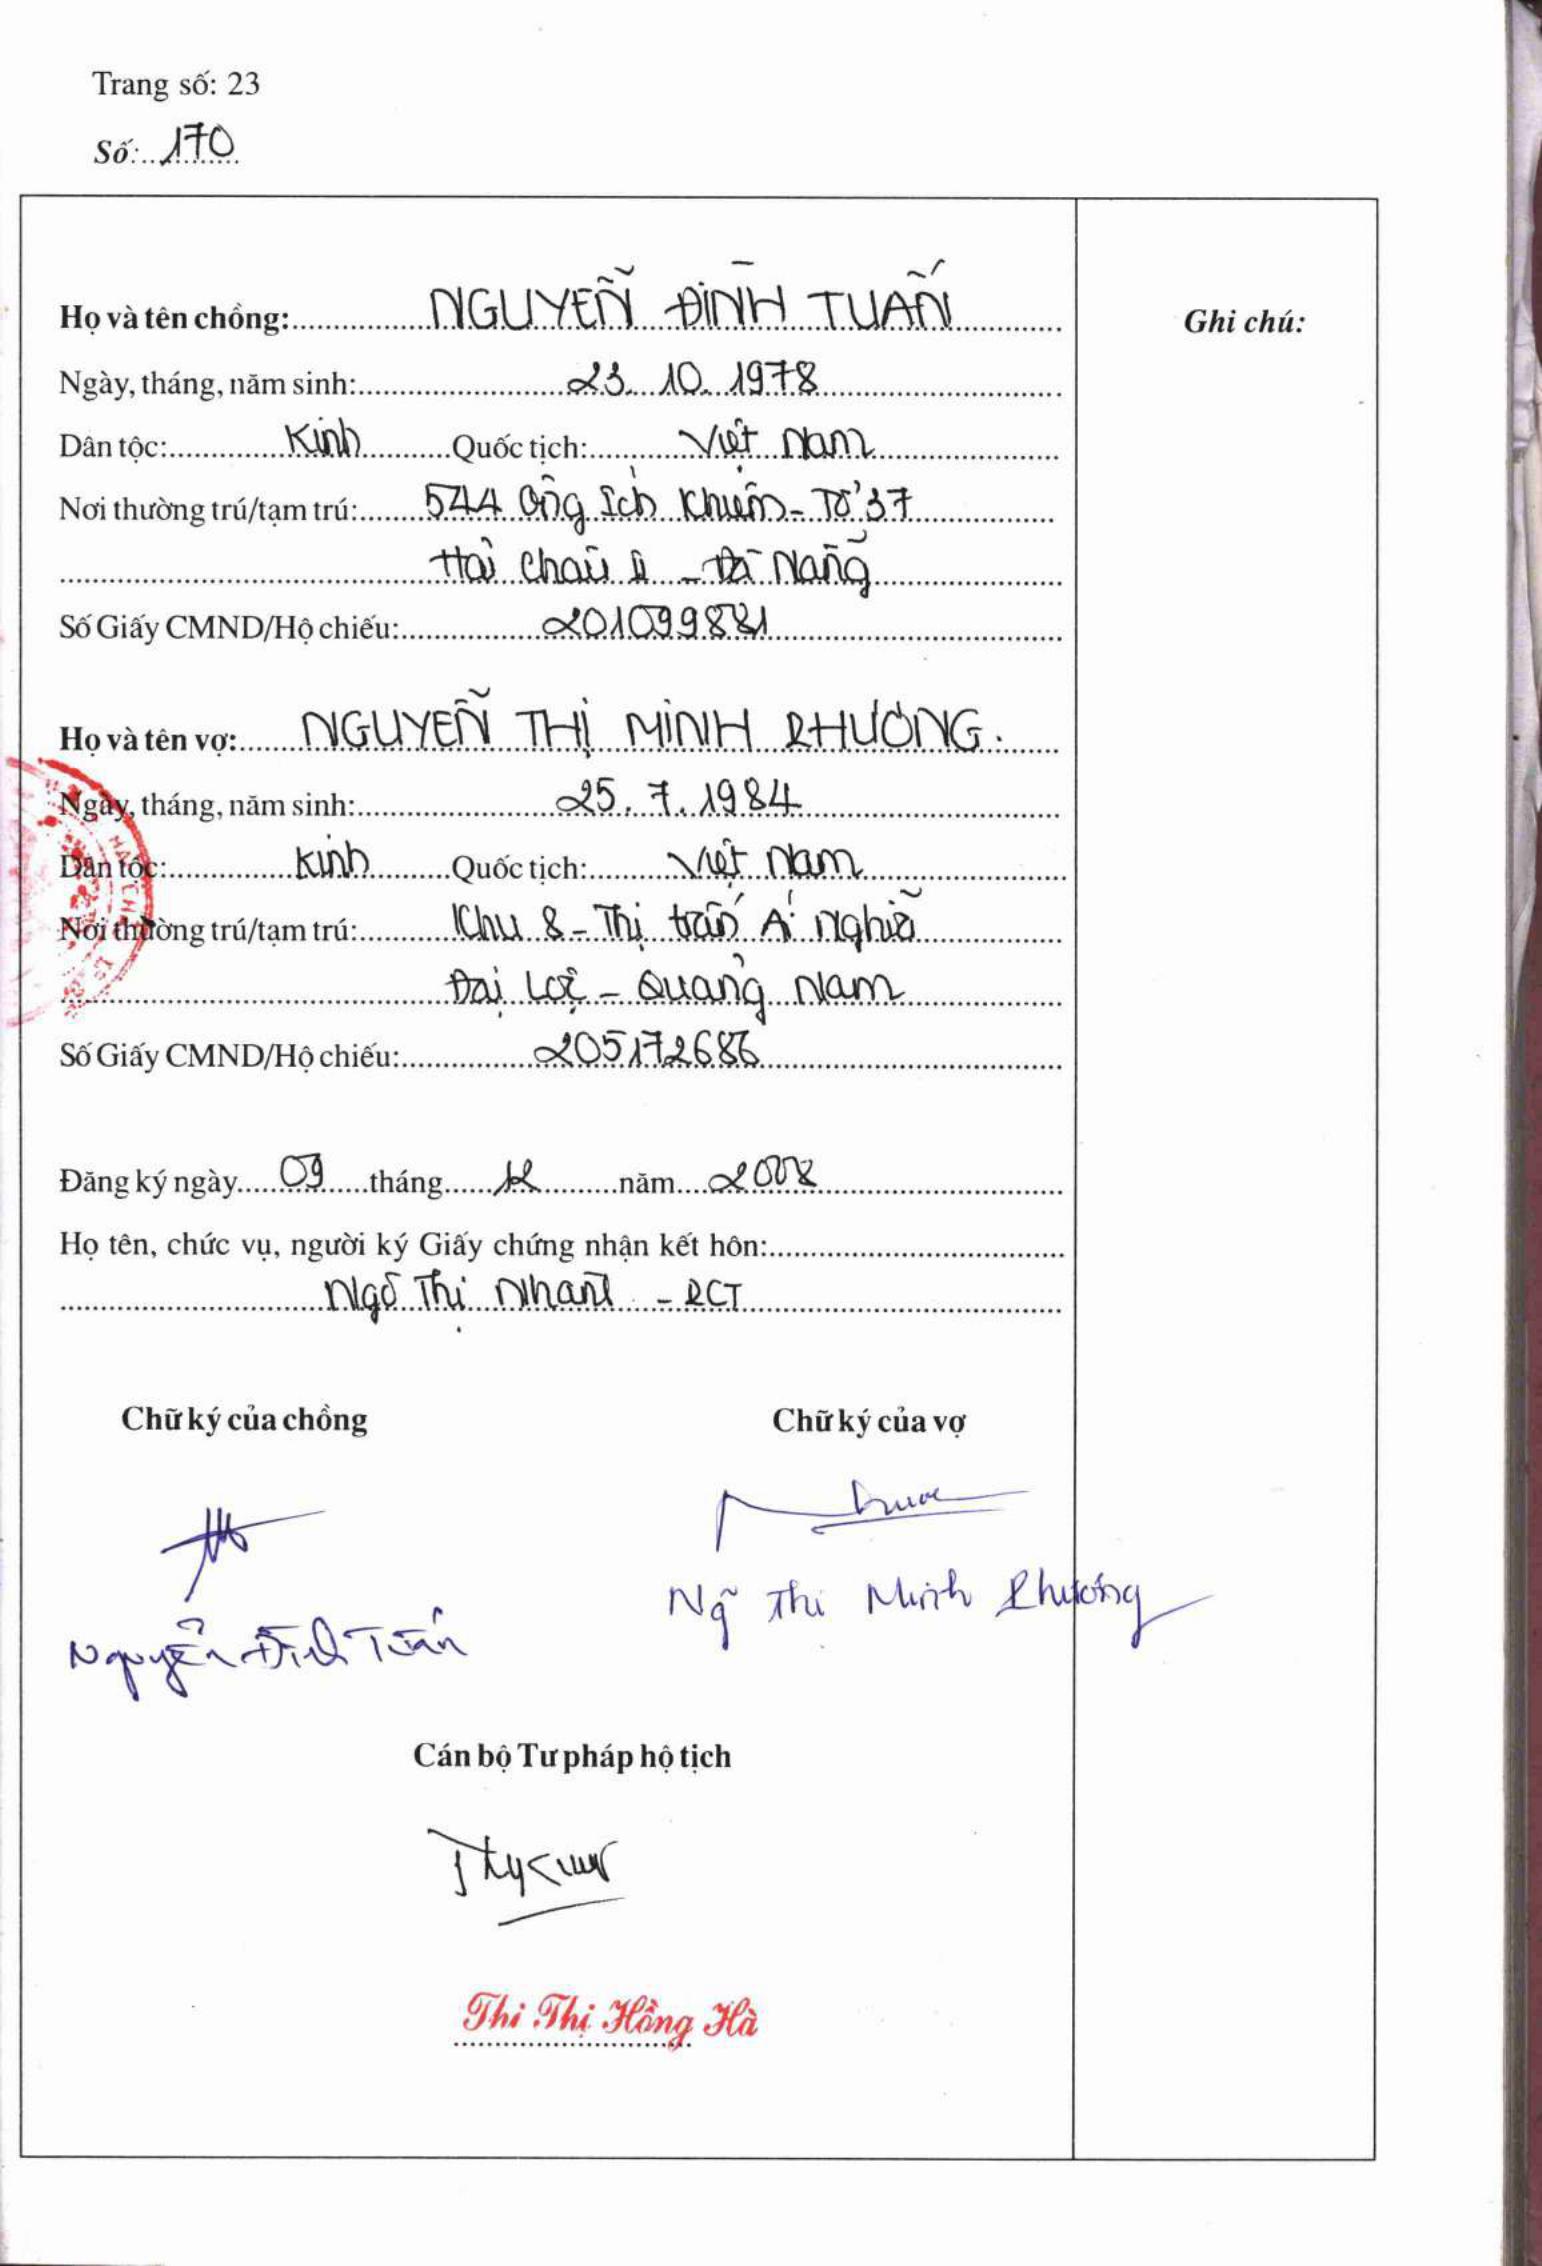 Trang số: 23
Số: 170
Họ và tên chồng: NGUYỄN ĐÌNH TUẤN
Ghi chú:
Ngày, tháng, năm sinh: 23. 10. 1978
Dân tộc: Kinh Quốc tịch: Việt Nam
Nơi thường trú/tạm trú: 544 Ông Ích Khiêm - Tổ 37
Hải Châu II - Đà Nẵng
Số Giấy CMND/Hộ chiếu: 201099881
Họ và tên vợ: NGUYỄN THỊ MINH PHƯƠNG.
Ngày, tháng, năm sinh: 25. 7. 1984
Dân tộc: Kinh Quốc tịch: Việt Nam
Nơi thường trú/tạm trú: Khu 8 - Thị trấn Ái Nghĩa
Đại Lộc - Quảng Nam
Số Giấy CMND/Hộ chiếu: 205172686
Đăng ký ngày 09 tháng 12 năm 2008
Họ tên, chức vụ, người ký Giấy chứng nhận kết hôn:
Ngô Thị Nhàn - PCT
Chữ ký của chồng Chữ ký của vợ
Ng~ Thị Minh Phương
Nguyễn Đình Tuấn
Cán bộ Tư pháp hộ tịch
Thi Thị Hồng Hà